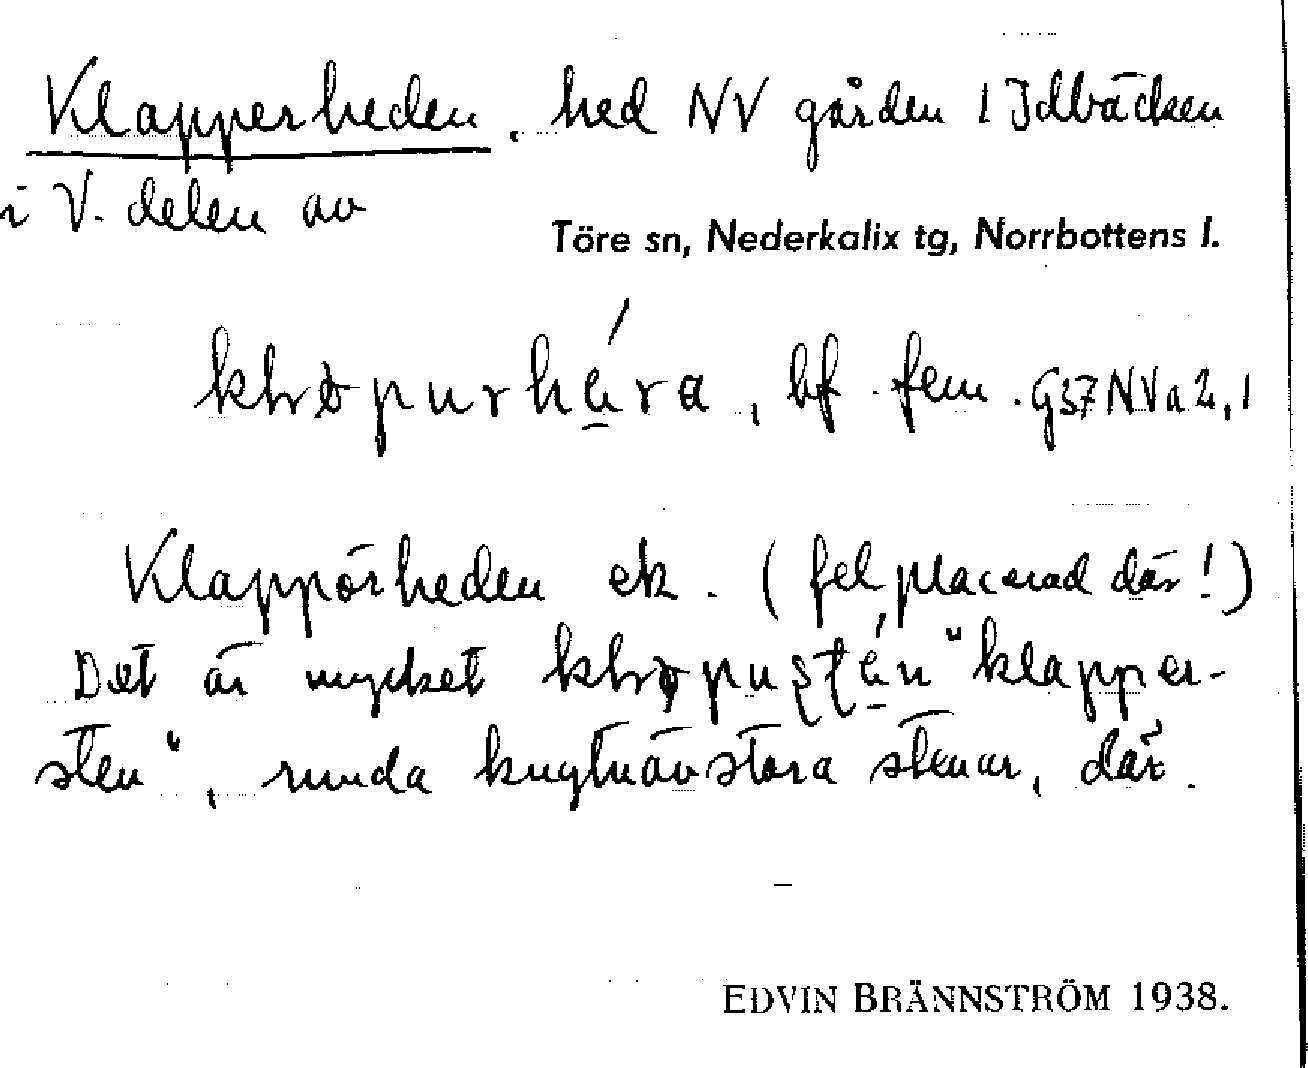 Klapperheden. hed NV gården 1 Idbäcken
i V. delen av
Töre sn, Nederkalix tg, Norrbottens l.
bf. fem. G37NVa2,1
Klappörheden ek. (fel placerad där!)
Det är mycket "klapper-
sten", runda knytnävstora stenar, där.
EDVIN BRÄNNSTRÖM 1938.